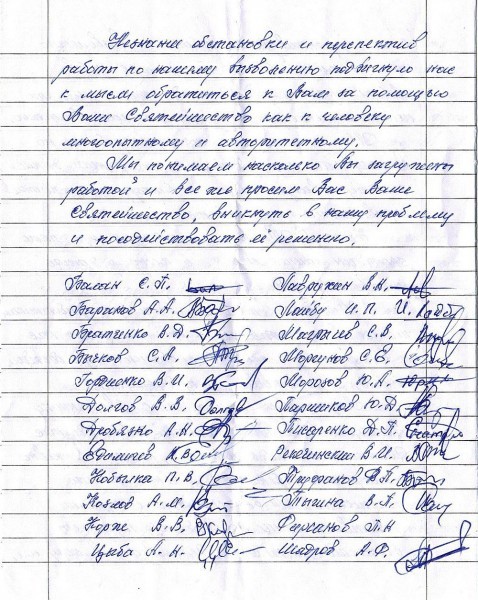 Незнание обстановки и перспектив
работы по нашему вызволению подвигнуло нас
к мысли обратиться к Вам за помощью
Ваше Святейшество как к человеку
многоопытному и авторитетному.
Мы понимаем насколько Вы загружены
работой и все же просим Вас Ваше
Святейшество, вникнуть в нашу проблему
и посодействовать её решению.
Балан С.П. Лавружин В.Н.
Баранов А.А. Майбу И.П.
Братченко В.Д. Магрычев С.В.
Бычков С.А. Моргунов С.Е.
Гордиенко В.И. Морозов Ю.А.
Долгов В.В. Паршиков Ю.Д.
Дроблзко А.Н. Писаренко Д.А.
Кобылка П.В. Труфанов В.П.
Козлов А.М. Тыгина В.А.
Корж В.В.
Цыба А.Н. Шадров А.Ф.